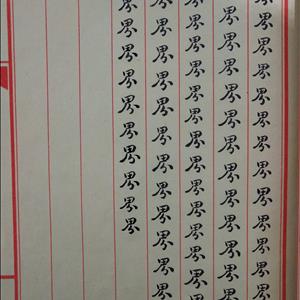 界界界界界界界界界界界界界
界界界界界界界界界界界
界界界界界界界界界界界界界
界界界界界界界界界界界界
界界界界界界界界界界